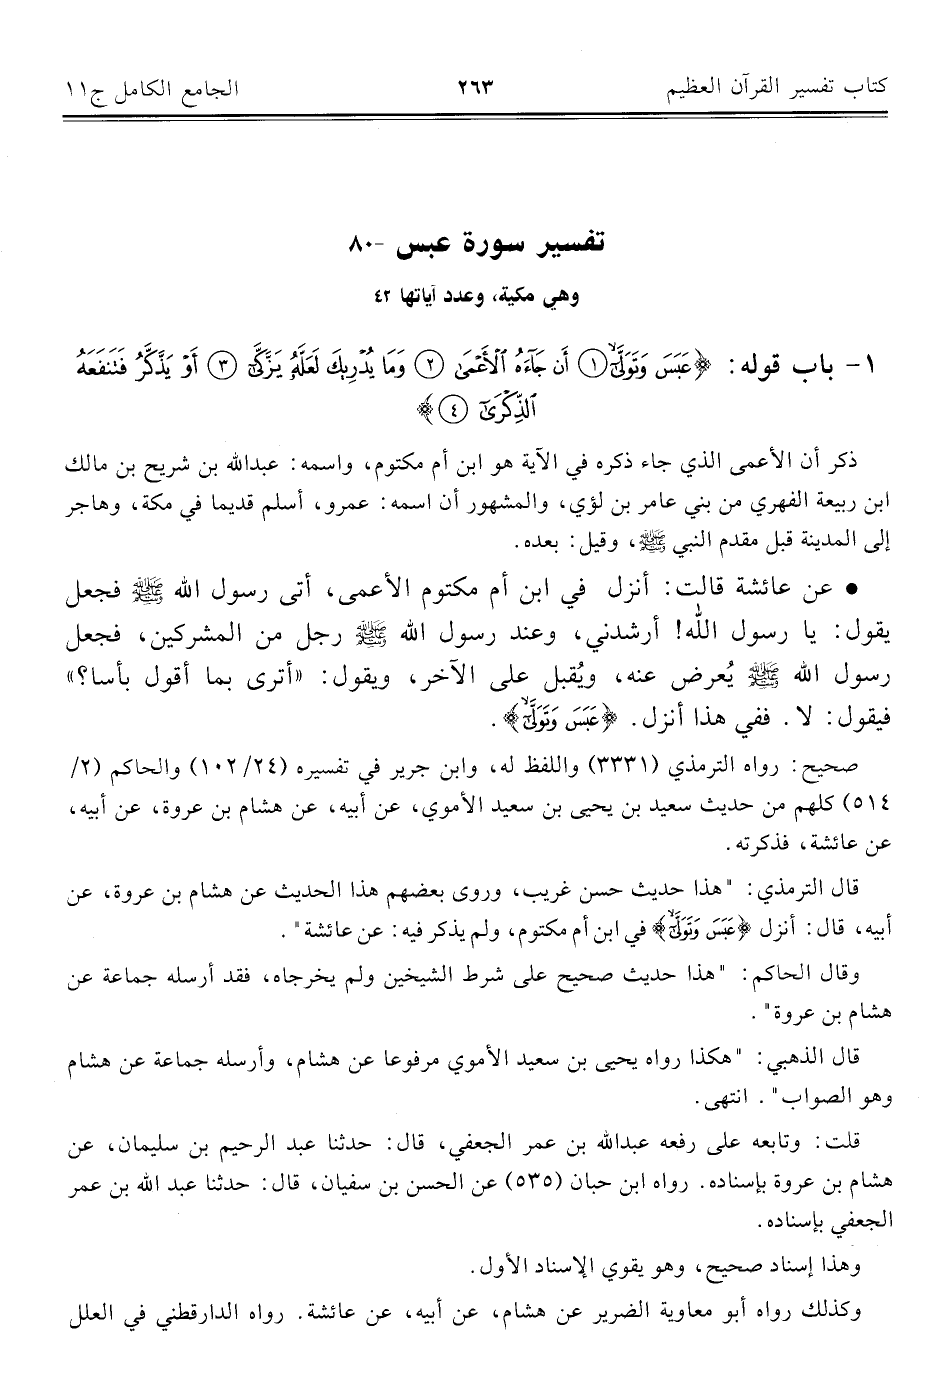 كتاب تفسير القرآن العظيم ٢٦٣ الجامع الكامل ج١١
تفسير سورة عبس -٨٠
وهي مكية، وعدد آياتها ٤٢
١- باب قوله: ﴿عَبَسَ وَتَوَلَّىٰٓ ۙ(١) أَن جَآءَهُ ٱلْأَعْمَىٰ (٢) وَمَا يُدْرِيكَ لَعَلَّهُۥ يَزَّكَّىٰٓ (٣) أَوْ يَذَّكَّرُ فَتَنفَعَهُ
ٱلذِّكْرَىٰٓ (٤)﴾
ذكر أن الأعمى الذي جاء ذكره في الآية هو ابن أم مكتوم، واسمه: عبدالله بن شريح بن مالك
ابن ربيعة الفهري من بني عامر بن لؤي، والمشهور أن اسمه: عمرو، أسلم قديما في مكة، وهاجر
إلى المدينة قبل مقدم النبي ﷺ، وقيل: بعده.
• عن عائشة قالت: أنزل في ابن أم مكتوم الأعمى، أتى رسول الله ﷺ فجعل
يقول: يا رسول الله! أرشدني، وعند رسول الله ﷺ رجل من المشركين، فجعل
رسول الله ﷺ يُعرض عنه، ويُقبل على الآخر، ويقول: «أترى بما أقول بأسا؟»
فيقول: لا. ففي هذا أنزل. ﴿عَبَسَ وَتَوَلَّىٰٓ ۙ﴾.
صحيح: رواه الترمذي (٣٣٣١) واللفظ له، وابن جرير في تفسيره (٢٤/ ١٠٢) والحاكم (٢/
٥١٤) كلهم من حديث سعيد بن يحيى بن سعيد الأموي، عن أبيه، عن هشام بن عروة، عن أبيه،
عن عائشة، فذكرته.
قال الترمذي: "هذا حديث حسن غريب، وروى بعضهم هذا الحديث عن هشام بن عروة، عن
أبيه، قال: أنزل ﴿عَبَسَ وَتَوَلَّىٰٓ ۙ﴾ في ابن أم مكتوم، ولم يذكر فيه: عن عائشة".
وقال الحاكم: "هذا حديث صحيح على شرط الشيخين ولم يخرجاه، فقد أرسله جماعة عن
هشام بن عروة".
قال الذهبي: "هكذا رواه يحيى بن سعيد الأموي مرفوعا عن هشام، وأرسله جماعة عن هشام
وهو الصواب". انتهى.
قلت: وتابعه على رفعه عبدالله بن عمر الجعفي، قال: حدثنا عبد الرحيم بن سليمان، عن
هشام بن عروة بإسناده. رواه ابن حبان (٥٣٥) عن الحسن بن سفيان، قال: حدثنا عبد الله بن عمر
الجعفي بإسناده.
وهذا إسناد صحيح، وهو يقوي الإسناد الأول.
وكذلك رواه أبو معاوية الضرير عن هشام، عن أبيه، عن عائشة. رواه الدارقطني في العلل